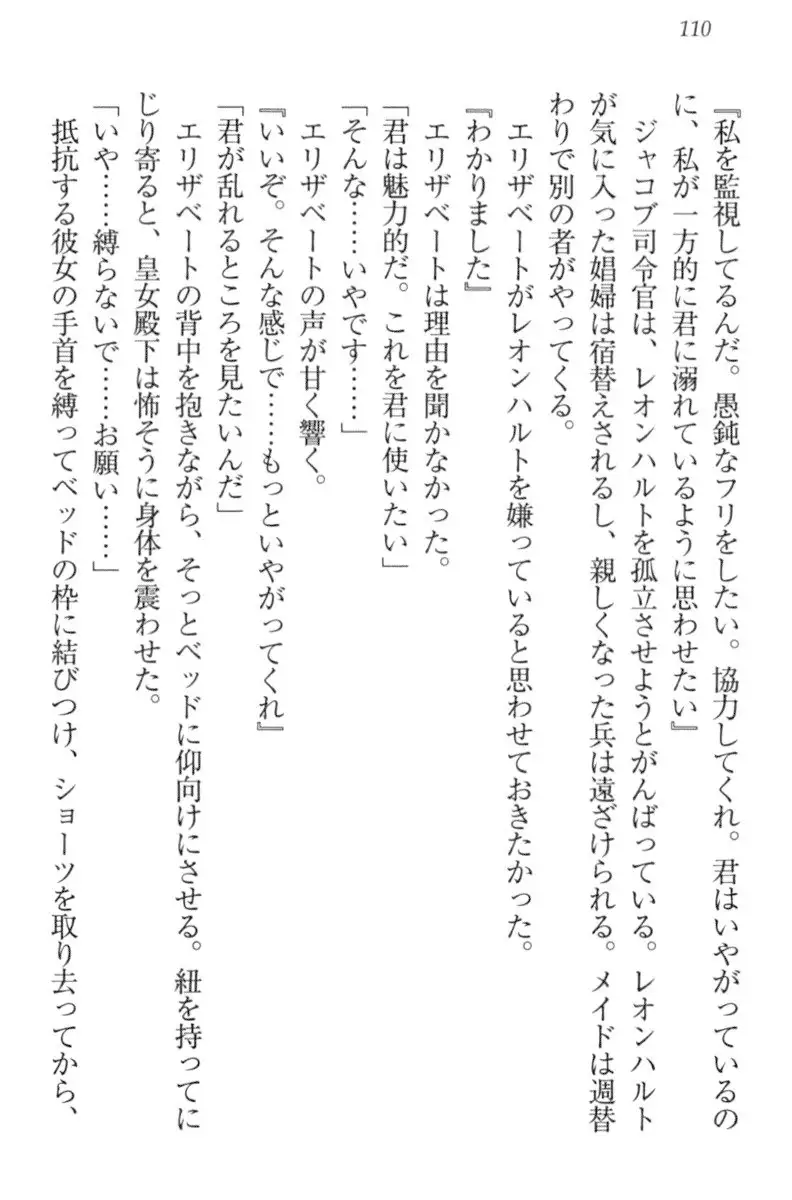 110
『私を監視してるんだ。愚鈍なフリをしたい。協力してくれ。君はいやがっているの
に、私が一方的に君に溺れているように思わせたい』
　ジャコブ司令官は、レオンハルトを孤立させようとがんばっている。レオンハルト
が気に入った娼婦は宿替えされるし、親しくなった兵は遠ざけられる。メイドは週替
わりで別の者がやってくる。
　エリザベートがレオンハルトを嫌っていると思わせておきたかった。
『わかりました』
　エリザベートは理由を聞かなかった。
「君は魅力的だ。これを君に使いたい」
「そんな……いやです……」
　エリザベートの声が甘く響く。
『いいぞ。そんな感じで……もっといやがってくれ』
「君が乱れるところを見たいんだ」
　エリザベートの背中を抱きながら、そっとベッドに仰向けにさせる。紐を持ってに
じり寄ると、皇女殿下は怖そうに身体を震わせた。
「いや……縛らないで……お願い……」
　抵抗する彼女の手首を縛ってベッドの枠に結びつけ、ショーツを取り去ってから、